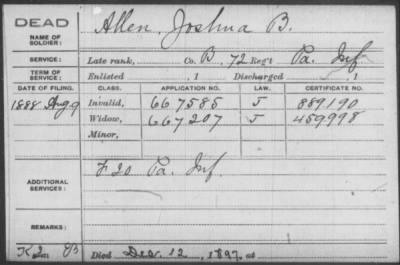 DEAD
NAME OF SOLDIER: Allen, Joshua B.
SERVICE: Late rank, Co. B, 72 Reg't Pa. Inf
TERM OF SERVICE: Enlisted , 1 Discharged , 1
DATE OF FILING. CLASS. APPLICATION NO. LAW. CERTIFICATE NO.
1888 Aug 9 Invalid, 667585 J 889190
Widow, 667207 J 459998
Minor,
ADDITIONAL SERVICES: F 20 Pa. Inf.
REMARKS:
Died Dec. 12, 1897, at